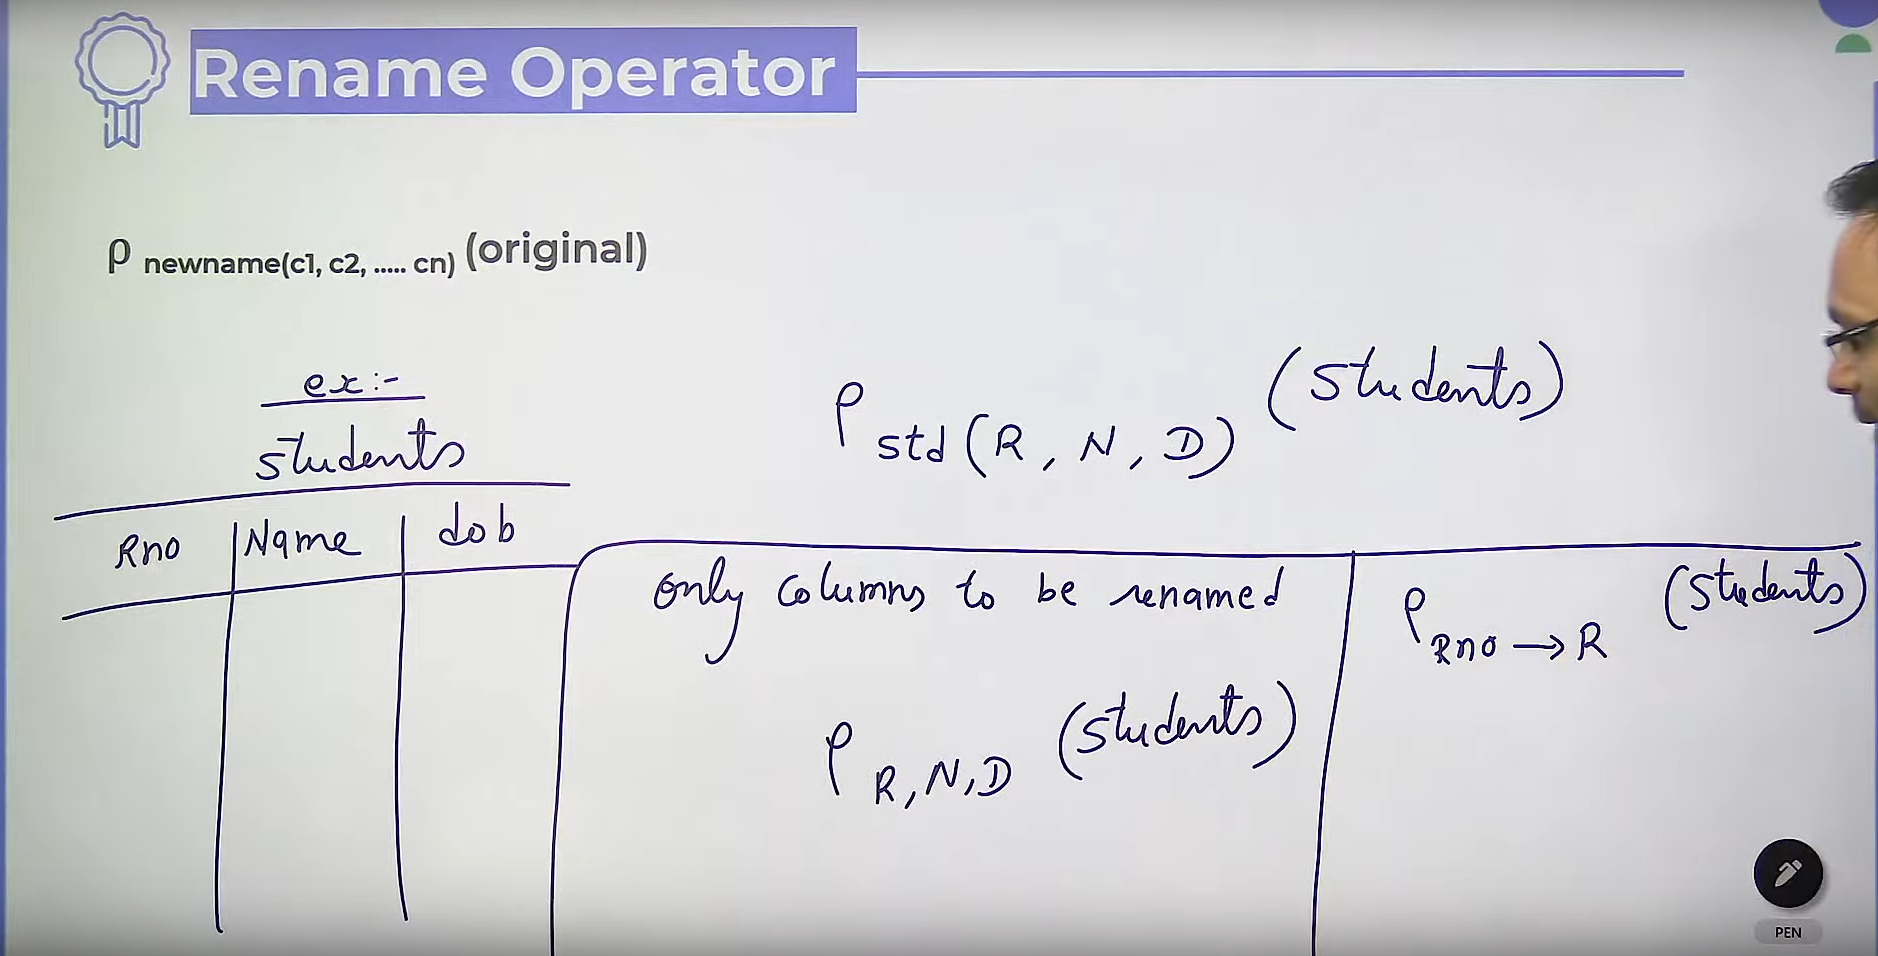 Rename Operator
ρ newname(c1, c2, ..... cn) (original)
ex :-
students
Rno | Name | dob
ρ std (R, N, D) (students)
only columns to be renamed
ρ R, N, D (students)
ρ Rno → R (students)
PEN